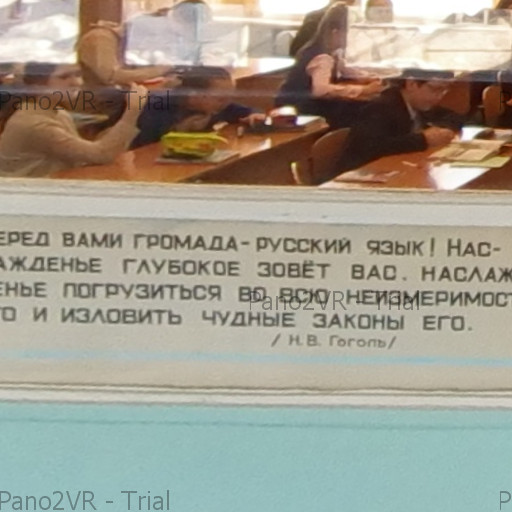 Pano2VR - Trial
ЕРЕД ВАМИ ГРОМАДА-РУССКИЙ ЯЗЫК! НАС-
АЖДЕНЬЕ ГЛУБОКОЕ ЗОВЁТ ВАС. НАСЛАЖ
ЕНЬЕ ПОГРУЗИТЬСЯ ВО ВСЮ НЕИЗМЕРИМОСТ
Pano2VR - Trial
О И ИЗЛОВИТЬ ЧУДНЫЕ ЗАКОНЫ ЕГО.
/ Н.В. Гоголь/
Pano2VR - Trial